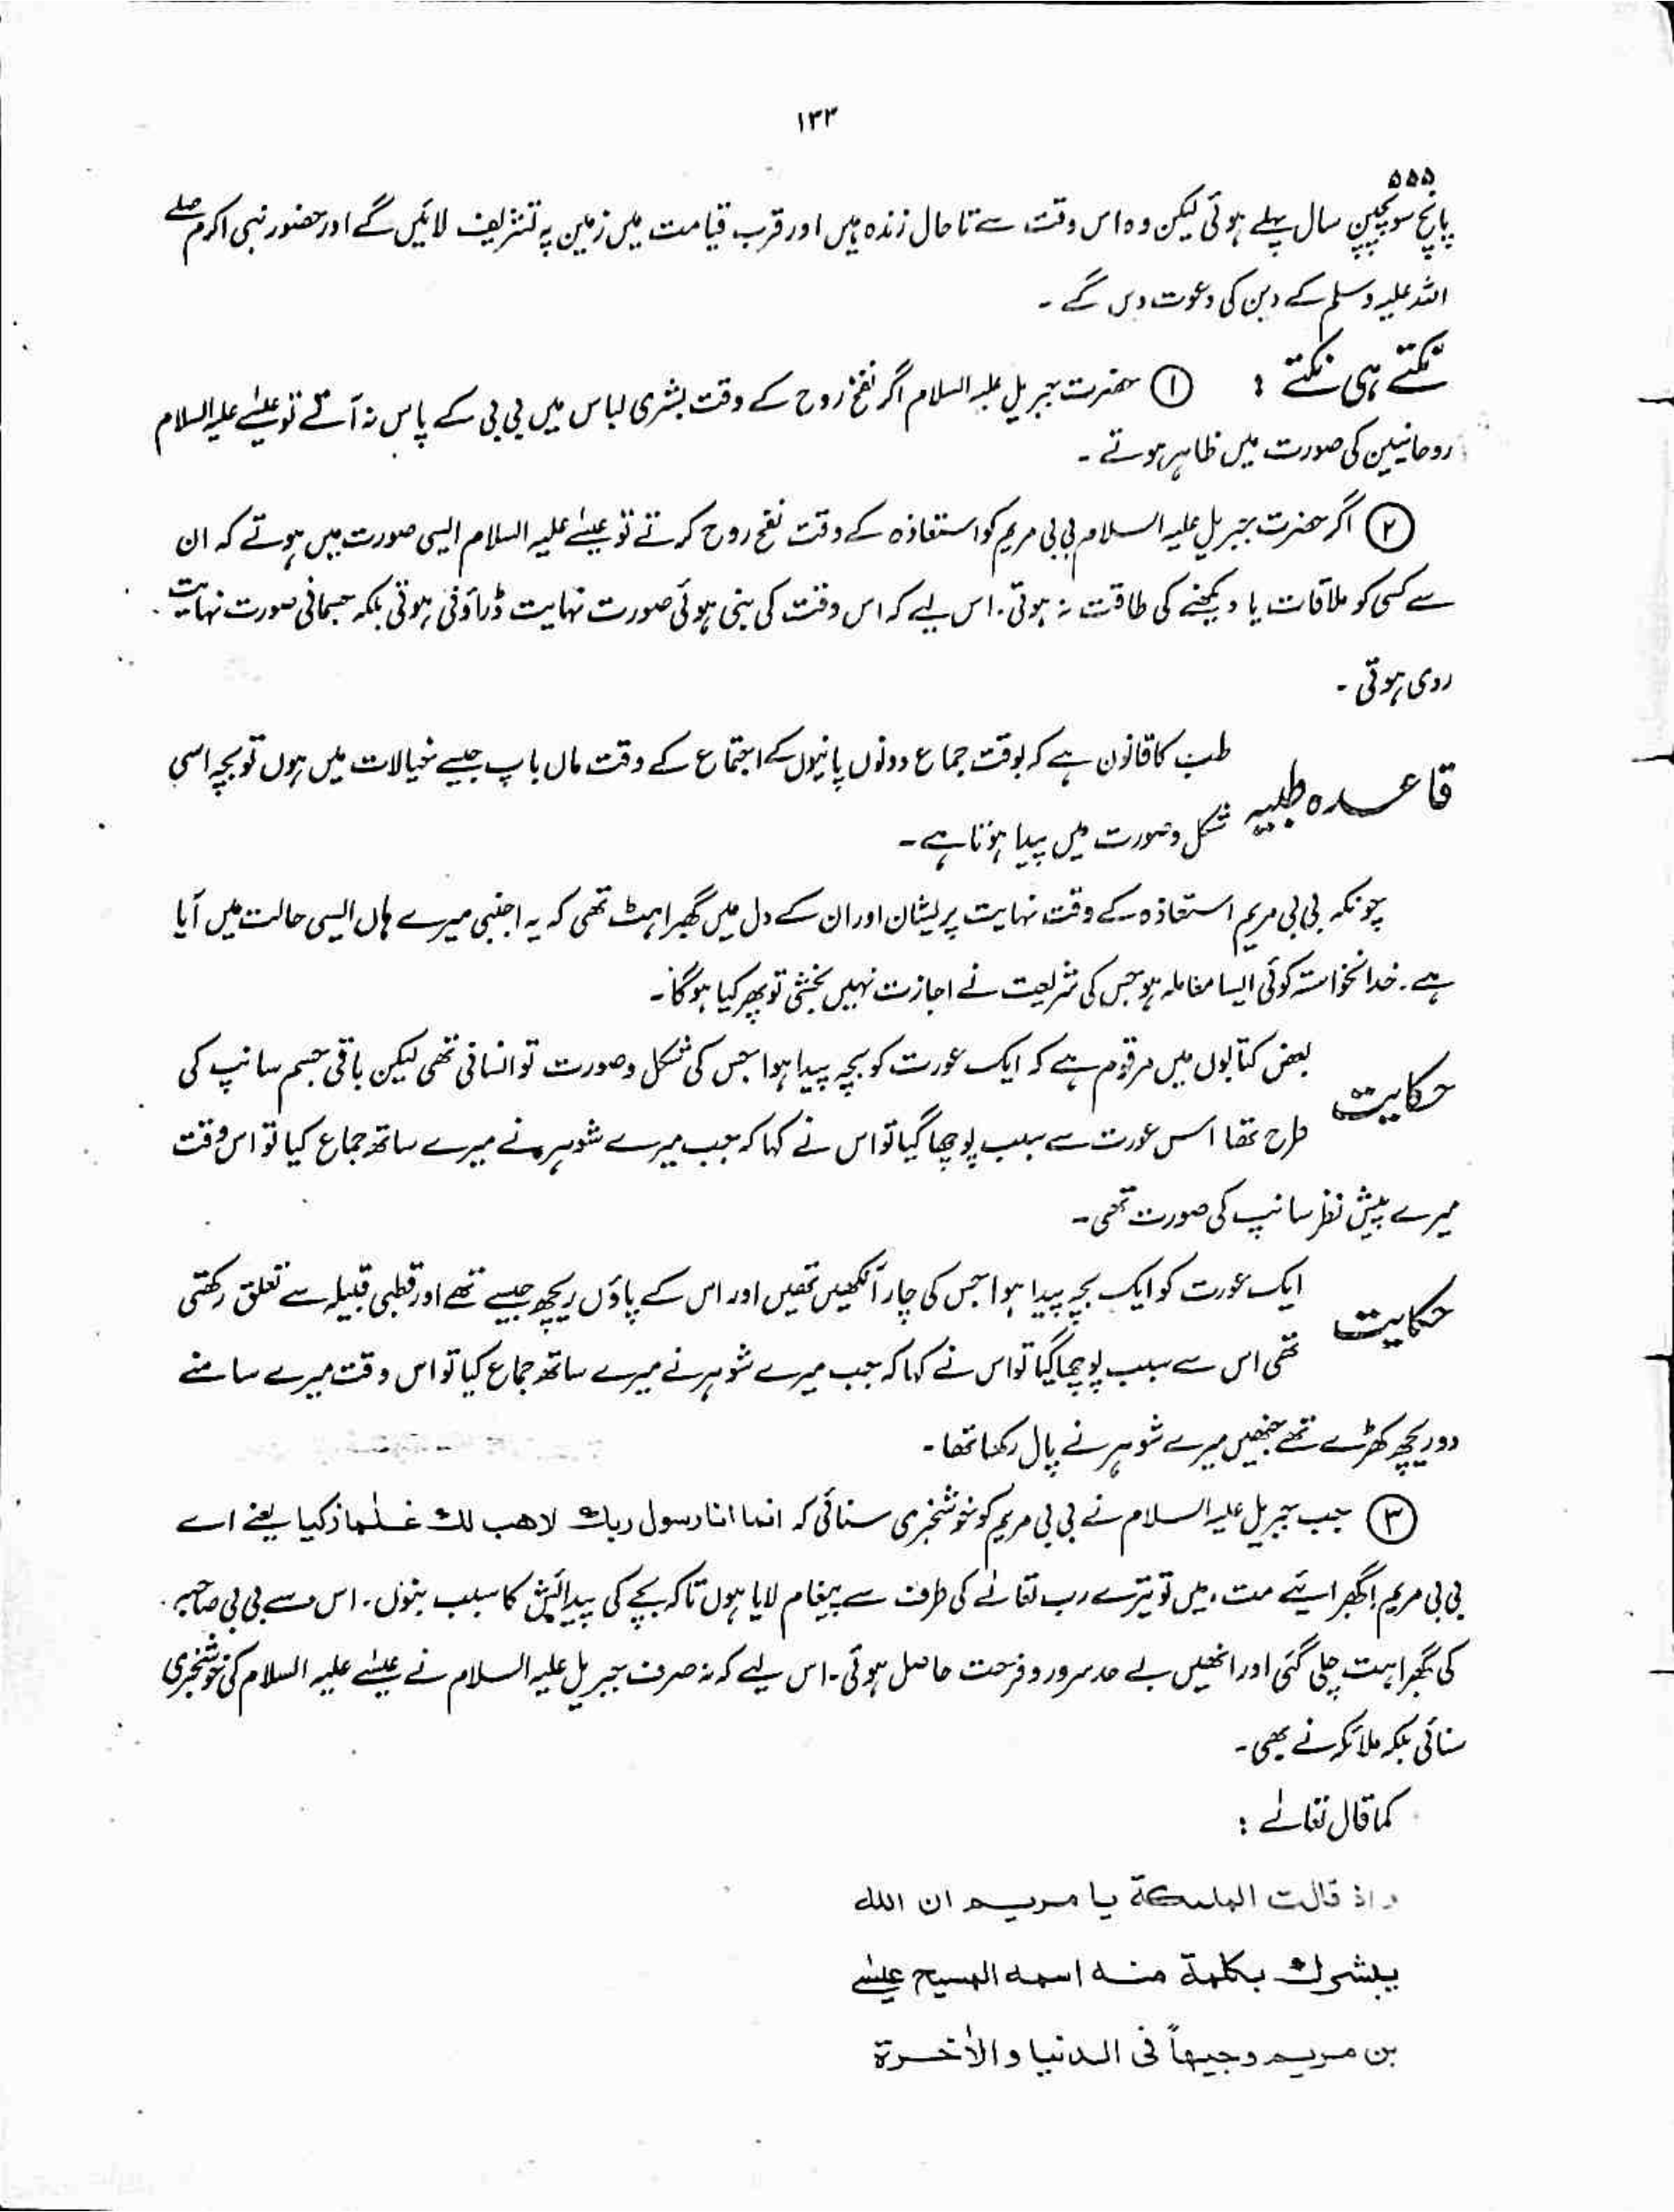 ۱۳۳
۵۵۵
پانچ سو پچپن سال پہلے ہوئی لیکن وہ اس وقت سے تا حال زندہ ہیں اور قرب قیامت میں زمین پہ تشریف لائیں گے اور حضور نبی اکرم صلے
اللہ علیہ وسلم کے دین کی دعوت دیں گے ۔
نکتے ہی نکتے : ① حضرت جبریل علیہ السلام اگر نفخ روح کے وقت بشری لباس میں بی بی کے پاس نہ آتے تو عیسٰے علیہ السلام
روحانیین کی صورت میں ظاہر ہوتے ۔
② اگر حضرت جبریل علیہ السلام بی بی مریم کو استعاذہ کے وقت نفخ روح کرتے تو عیسٰے علیہ السلام ایسی صورت میں ہوتے کہ ان
سے کسی کو ملاقات یا دیکھنے کی طاقت نہ ہوتی۔ اس لیے کہ اس وقت کی بنی ہوئی صورت نہایت ڈراؤنی ہوتی بلکہ جسمانی صورت نہایت
ردی ہوتی ۔
قاعدہ طبیہ طب کا قانون ہے کہ بوقت جماع دونوں پانیوں کے اجتماع کے وقت ماں باپ جیسے خیالات میں ہوں تو بچہ اسی
شکل و صورت میں پیدا ہوتا ہے ۔
چونکہ بی بی مریم استعاذہ کے وقت نہایت پریشان اور ان کے دل میں گھبراہٹ تھی کہ یہ اجنبی میرے ہاں ایسی حالت میں آیا
ہے ۔ خدانخواستہ کوئی ایسا معاملہ ہو جس کی شریعت نے اجازت نہیں بخشی تو پھر کیا ہوگا ۔
حکایت بعض کتابوں میں مرقوم ہے کہ ایک عورت کو بچہ پیدا ہوا جس کی شکل و صورت تو انسانی تھی لیکن باقی جسم سانپ کی
طرح تھا اس عورت سے سبب پوچھا گیا تو اس نے کہا کہ جب میرے شوہر نے میرے ساتھ جماع کیا تو اس وقت
میرے پیش نظر سانپ کی صورت تھی ۔
حکایت ایک عورت کو ایک بچہ پیدا ہوا جس کی چار آنکھیں تھیں اور اس کے پاؤں ریچھ جیسے تھے اور قطبی قبیلہ سے تعلق رکھتی
تھی اس سے سبب پوچھا گیا تو اس نے کہا کہ جب میرے شوہر نے میرے ساتھ جماع کیا تو اس وقت میرے سامنے
دو ریچھ کھڑے تھے جنھیں میرے شوہر نے پال رکھا تھا ۔
③ جب جبریل علیہ السلام نے بی بی مریم کو خوشخبری سنائی کہ انما انا رسول ربك لاهب لك غلٰما زكيا یعنے اے
بی بی مریم ! گھبرائیے مت ، میں تو تیرے رب تعالٰے کی طرف سے پیغام لایا ہوں تاکہ بچے کی پیدائش کا سبب بنوں ۔ اس سے بی بی صاحبہ
کی گھبراہٹ چلی گئی اور انھیں بے حد سرور و فرحت حاصل ہوئی ۔ اس لیے کہ نہ صرف جبریل علیہ السلام نے عیسٰے علیہ السلام کی خوشخبری
سنائی بلکہ ملائکہ نے بھی ۔
کما قال تعالٰے :
و اذ قالت الملٰىكة يا مريم ان الله
يبشرك بكلمة منه اسمه المسيح عيسٰے
بن مريم وجيهاً فى الدنيا والاٰخرة